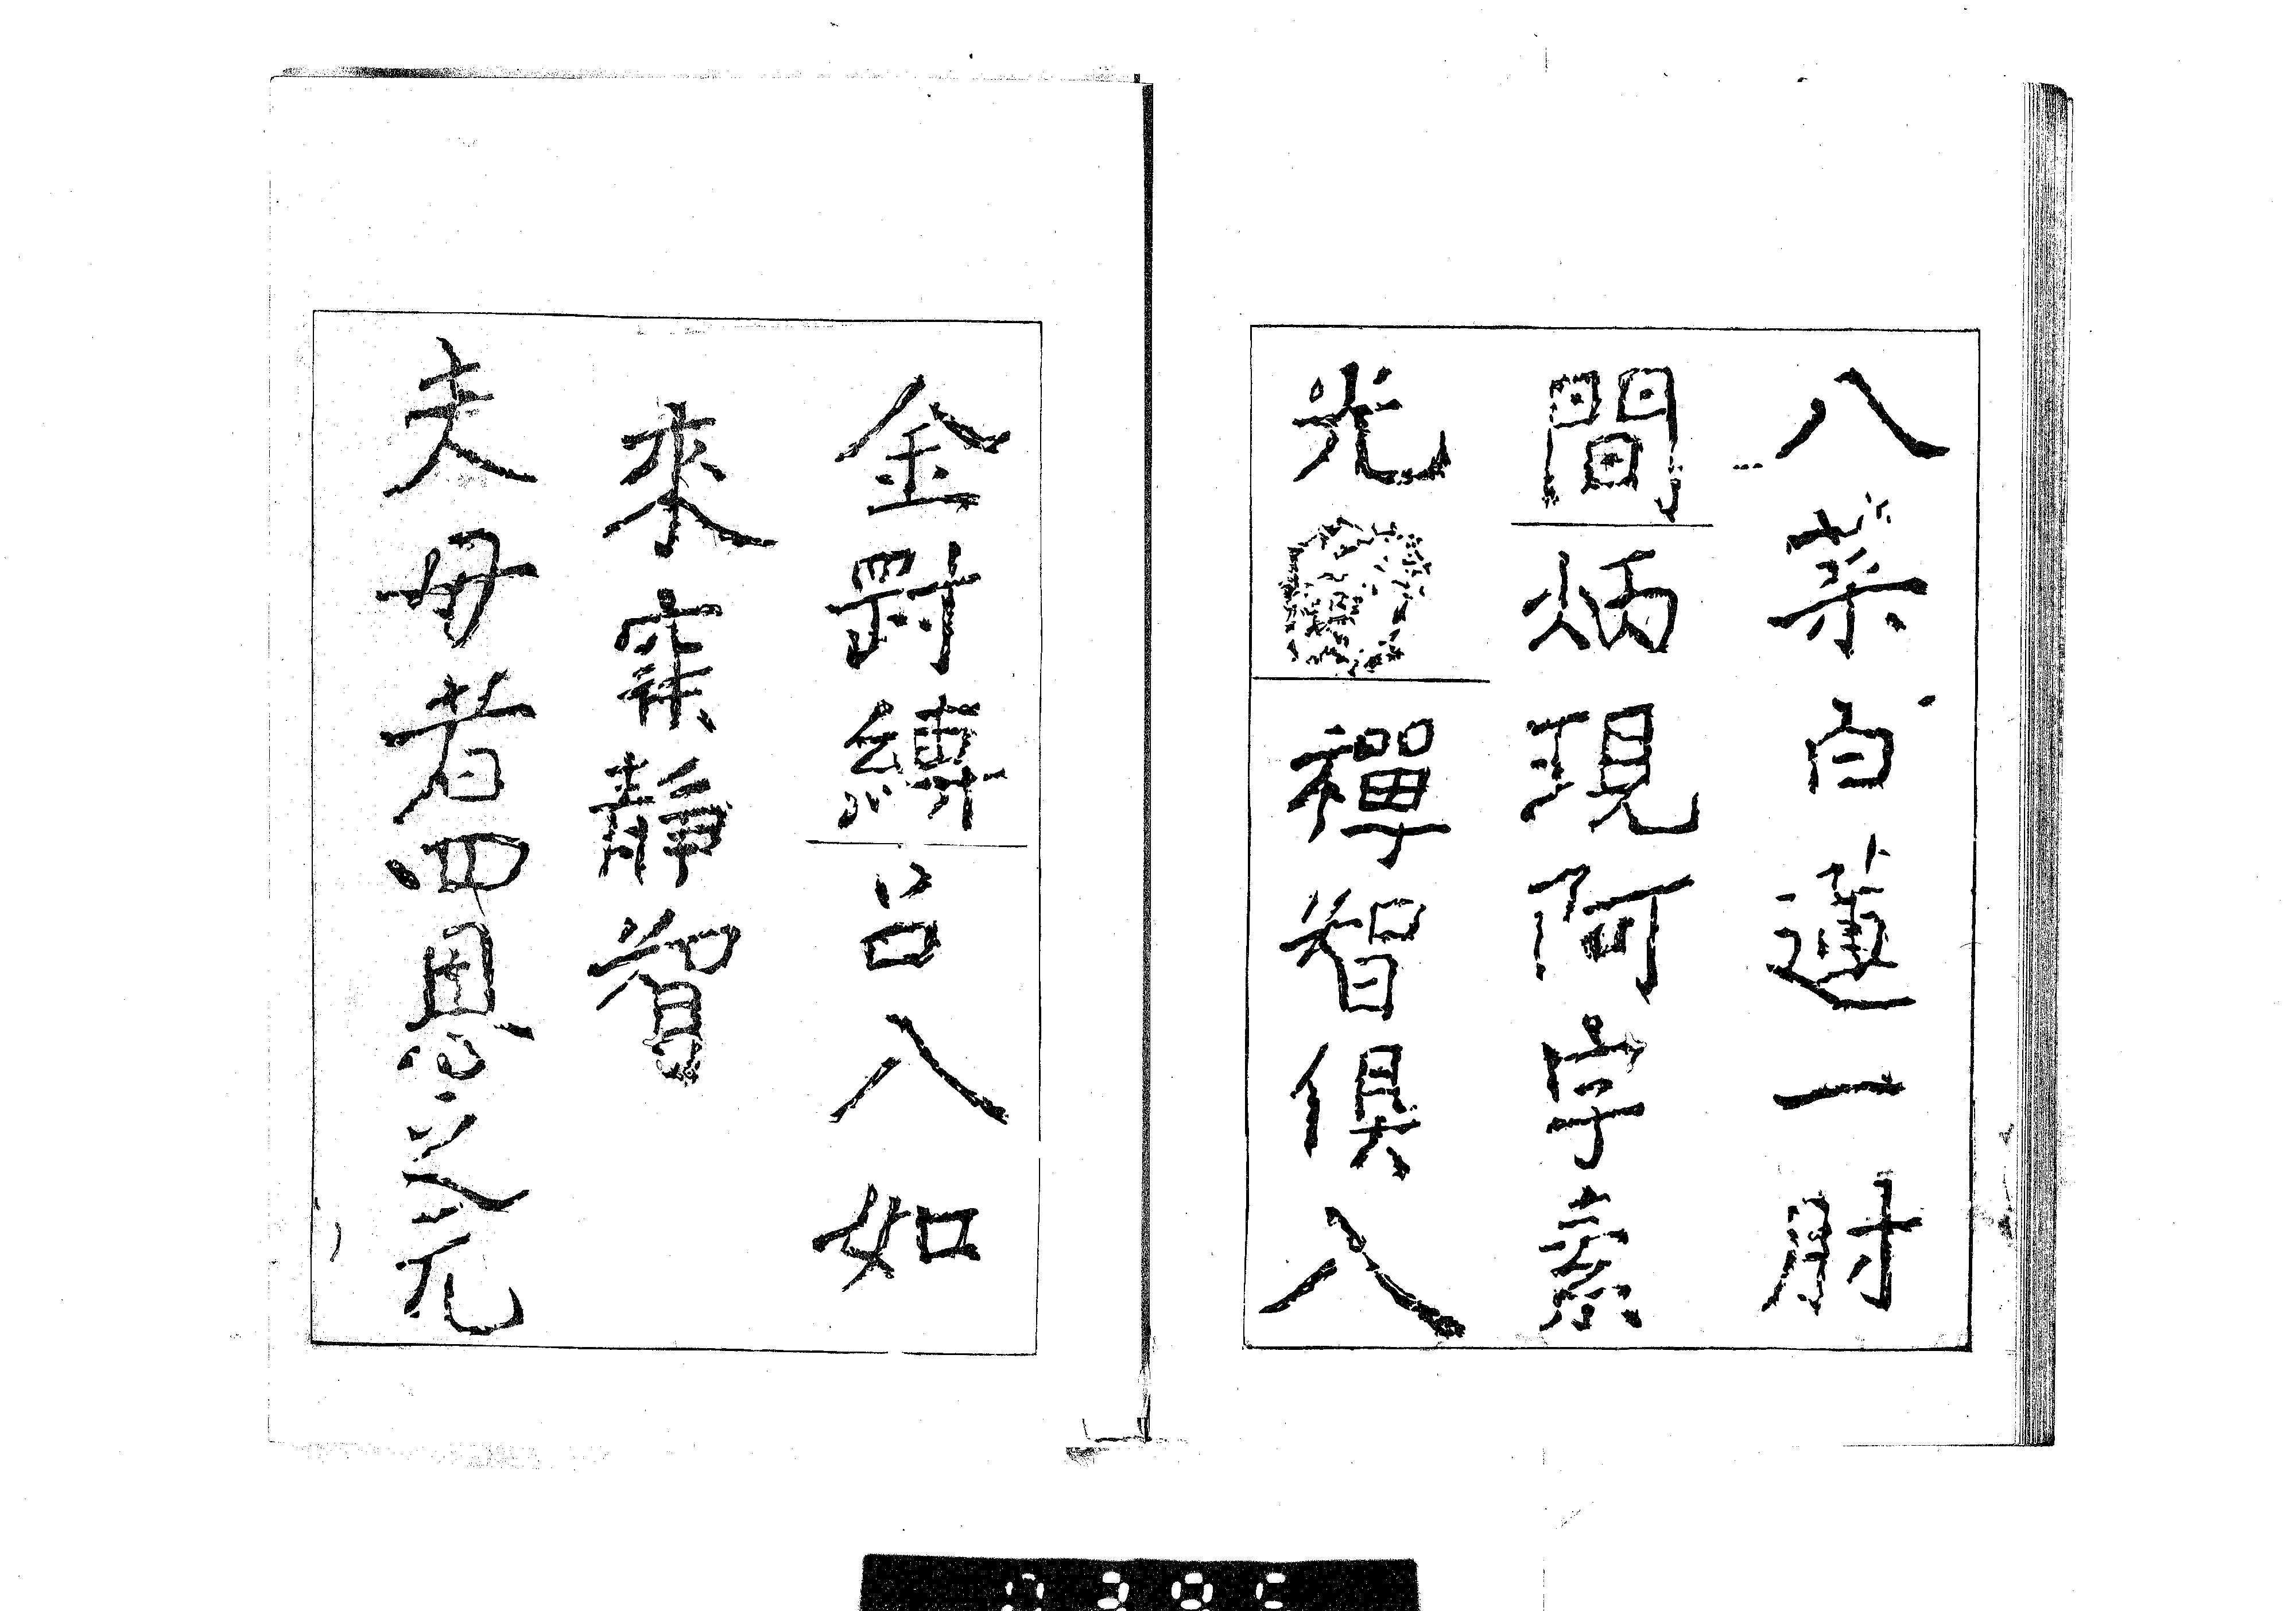 八葉白蓮一肘
間炳現阿字素
光禪智俱入
金剛縛召入如
來寂靜智
夫母者四恩之元